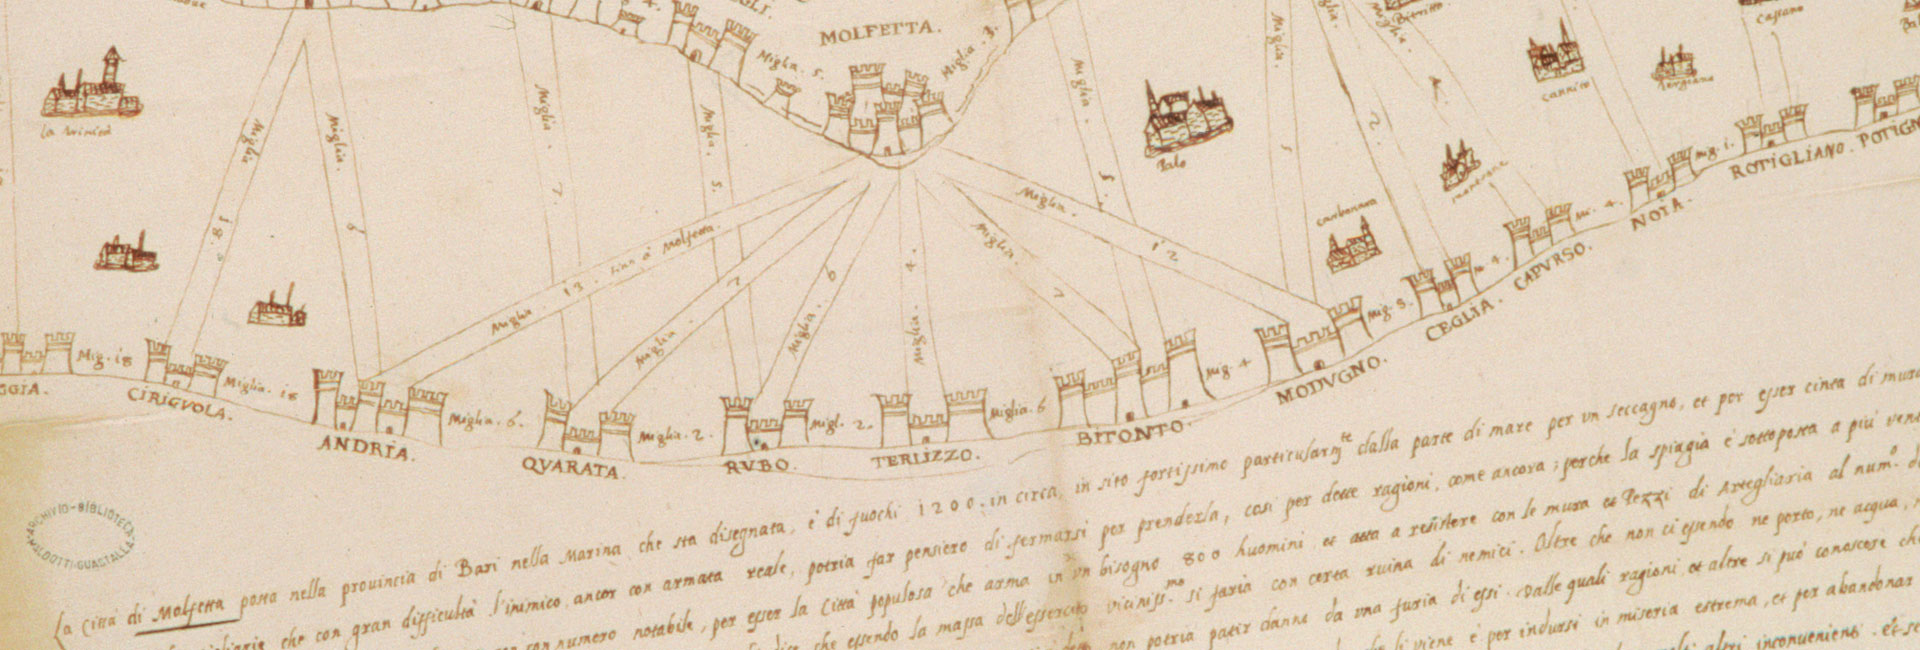 MOLFETTA.
Miglia. 5.
Miglia. 3.
Miglia
Miglia
Miglia
7.
Miglia.
5.
Miglia
5.
Miglia.
5
2.
4.
Bitritto
Cassano
Cannito
Palo
Carbonara
Miglia
18.
6
Miglia 13. sino a Molfetta.
Miglia. 7
Miglia. 6
Miglia. 4.
Miglia. 7
Miglia. 12
GGIA.
Mig. 18
CIRIGVOLA.
Miglia. 18
ANDRIA.
Miglia. 6.
QVARATA.
Miglia. 2.
RVBO.
Migl. 2.
TERLIZZO.
Miglia. 6
BITONTO.
Mig. 4
MODVGNO.
Mig. 3.
CEGLIA.
4.
CAPVRSO.
Mi. 4.
NOIA.
Mig. 1.
ROTIGLIANO.
POTIGN
ARCHIVIO-BIBLIOTECA
GUASTALLA
La Città di Molfetta posta nella provincia di Bari nella Marina che sta disegnata, è di fuochi 1200. in circa, in sito fortissimo particularmte dalla parte di mare per un seccagno, et per esser cinta di mura
che con gran difficultà l'inimico, ancor con armata reale, potria far pensiero di fermarsi per prenderla, cosi per dette ragioni, come ancora; perche la spiagia è sottoposta a più venti
numero notabile, per esser la Città populosa che arma in un bisogno 800 huomini, et atta a resistere con le mura et Pezzi di Artegliaria al num.o di
che essendo la massa dell'essercito viciniss.mo si faria con certa ruina di nemici. Oltre che non ci essendo ne porto, ne acqua,
non potria patir danno da una furia di essi. Dalle quali ragioni, et altre si può conoscere che
li viene è per indursi in miseria estrema, et per abandonar
altri inconvenienti.